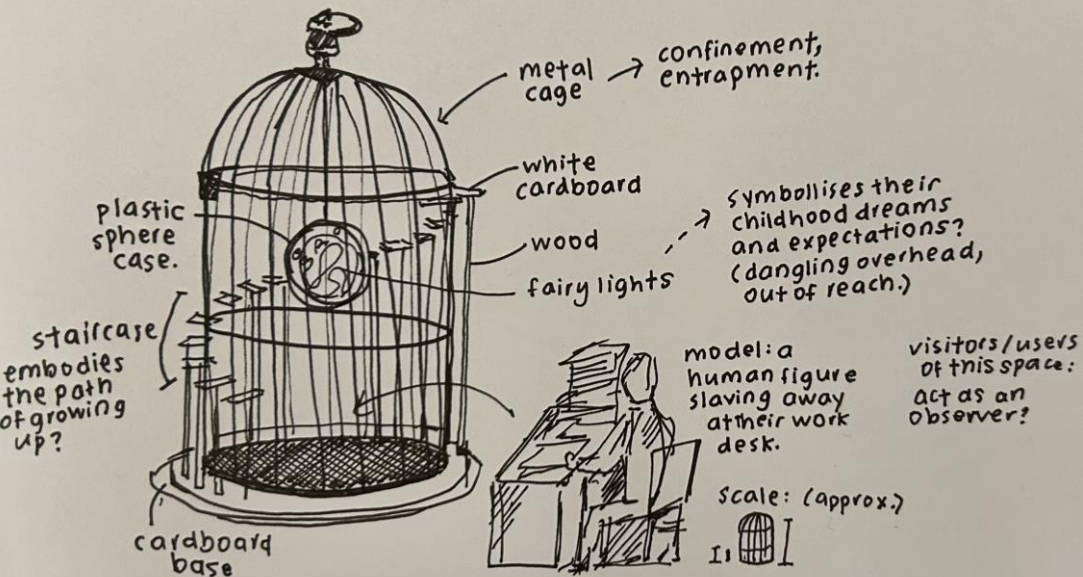 metal
cage
confinement,
entrapment.
white
cardboard
plastic
sphere
case.
wood
fairy lights
symbollises their
childhood dreams
and expectations?
(dangling overhead,
out of reach.)
staircase
embodies
the path
of growing
up?
model: a
human figure
slaving away
at their work
desk.
visitors/users
of this space:
act as an
observer?
scale: (approx.)
cardboard
base